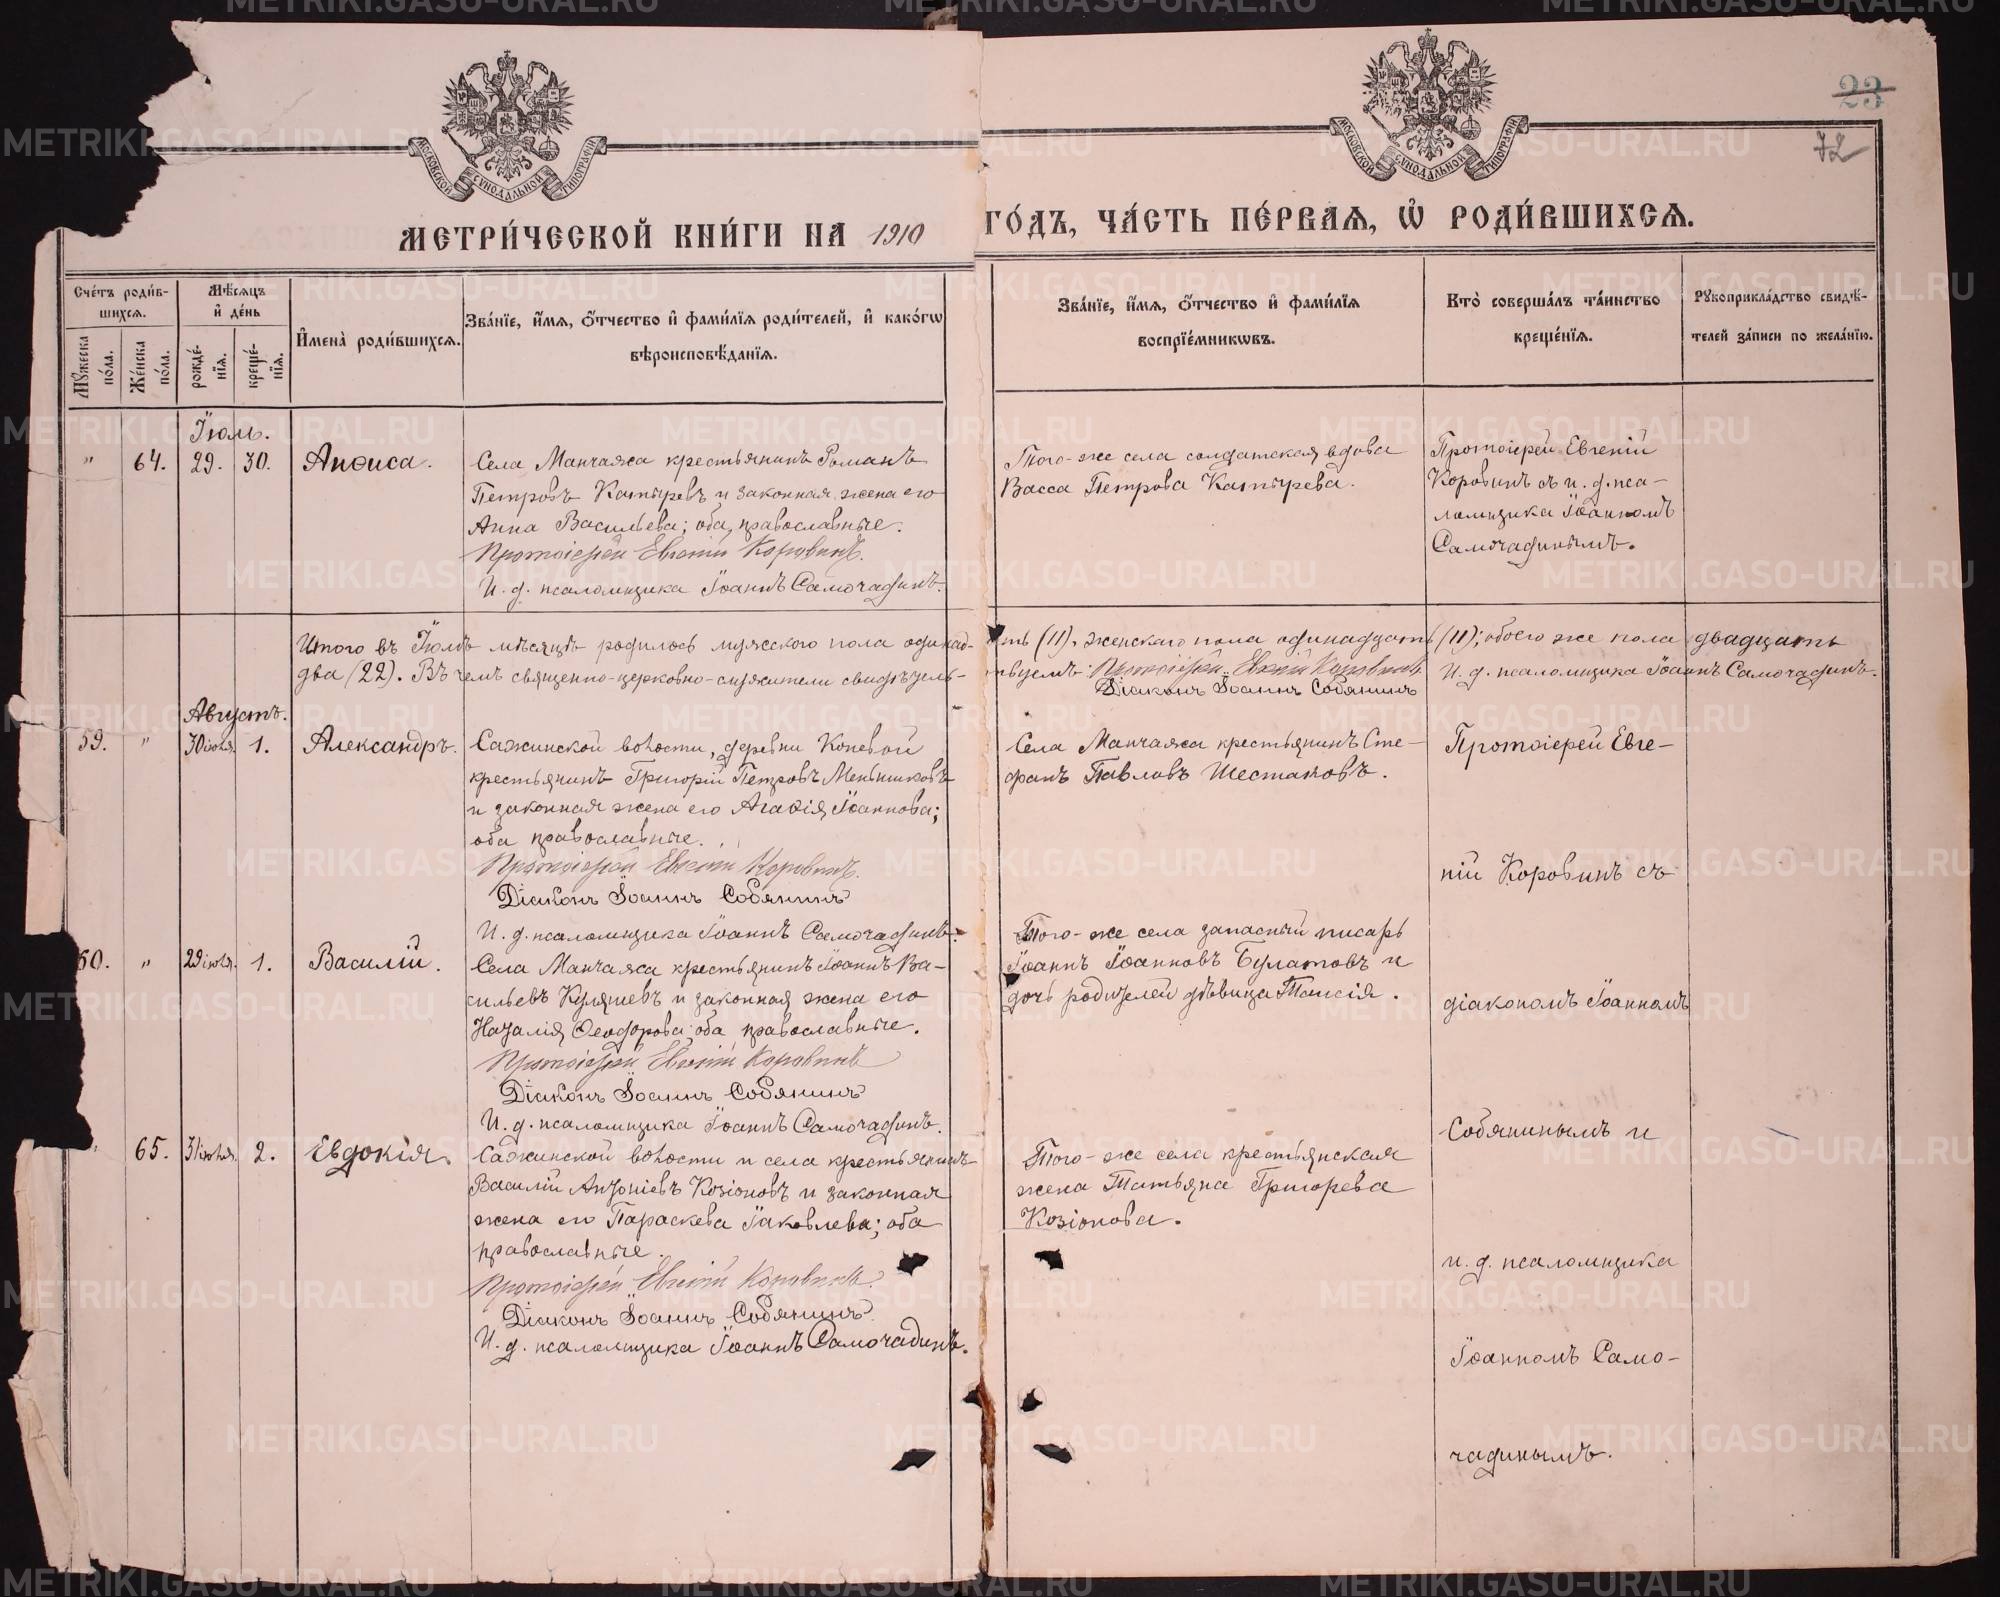 МОСКОВСКОЙ СУНОДАЛЬНОЙ ТИПОГРАФІИ
МОСКОВСКОЙ СУНОДАЛЬНОЙ ТИПОГРАФІИ
23
72
МЕТРИ́ЧЕСКОЙ КНИ́ГИ НА 1910 ГО́ДЪ, ЧА́СТЬ ПЕ́РВАѦ, Ѿ РОДИ́ВШИХСѦ.
Сче́тъ роди́в-
шихся.
Мꙋжеска по́ла.
Же́нска по́ла.
Мѣ́сяцъ
и҆ де́нь
рожде́-
нїѧ.
креще́-
нїѧ.
И҆мена̀ роди́вшихсѧ.
Зва́нїе, и҆́мѧ, ѻ҆́тчество и҆ фами́лїѧ роди́телей, и҆ како́гѡ
вѣроисповѣ́данїѧ.
Зва́нїе, и҆́мѧ, ѻ҆́тчество и҆ фами́лїѧ
воспрїе́мникѡвъ.
Кто̀ соверша́лъ та́инство
креще́нїѧ.
Рꙋкоприкла́дство свидѣ́-
телей за́писи по жела́нїю.
Іюль.
" 64. 29. 30. Анѳиса.
Села Манчажа крестьянинъ Романъ
Петровъ Катыревъ и законная жена его
Анна Васильева; оба православные.
Протоіерей Евгеній Коровинъ.
И. д. псаломщика Іоаннъ Самочадинъ.
Того-же села солдатская вдова
Васса Петрова Катырева.
Протоіерей Евгеній
Коровинъ съ и. д. пса-
ломщика Іоанномъ
Самочадинымъ.
Итого въ Іюлѣ мѣсяцѣ родилось мужского пола одинад-
цать (11), женскаго пола одинадцать (11); обоего же пола двадцать
два (22). Въ чемъ священно-церковно-служители свидѣтель-
ствуемъ: Протоіерей Евгеній Коровинъ. И. д. псаломщика Іоаннъ Самочадинъ.
Діаконъ Іоаннъ Собянинъ
Августъ.
59. " 30 іюля. 1. Александръ.
Сажинской волости, деревни Коневой
крестьянинъ Григорій Петровъ Меньшиковъ
и законная жена его Агаѳія Іоаннова;
оба православные.
Протоіерей Евгеній Коровинъ.
Діаконъ Іоаннъ Собянинъ
И. д. псаломщика Іоаннъ Самочадинъ.
Села Манчажа крестьянинъ Сте-
фанъ Павловъ Шестаковъ.
Протоіерей Евге-
ній Коровинъ съ
60. " 29 іюля. 1. Василій.
Села Манчажа крестьянинъ Іоаннъ Ва-
сильевъ Куляшевъ и законная жена его
Наталія Ѳеодорова; оба православные.
Протоіерей Евгеній Коровинъ
Діаконъ Іоаннъ Собянинъ
И. д. псаломщика Іоаннъ Самочадинъ.
Того-же села запасный писарь
Іоаннъ Іоанновъ Булатовъ и
дочь родителей дѣвица Таисія.
діакономъ Іоанномъ
Собянинымъ и
65. 31 іюля. 2. Евдокія.
Сажинской волости и села крестьянинъ
Василій Антоніевъ Козіоновъ и законная
жена его Параскева Іаковлева; оба
православные.
Протоіерей Евгеній Коровинъ.
Діаконъ Іоаннъ Собянинъ
И. д. псаломщика Іоаннъ Самочадинъ.
Того-же села крестьянская
жена Татьяна Григорьева
Козіонова.
и. д. псаломщика
Іоанномъ Само-
чадинымъ.
METRIKI.GASO-URAL.RU